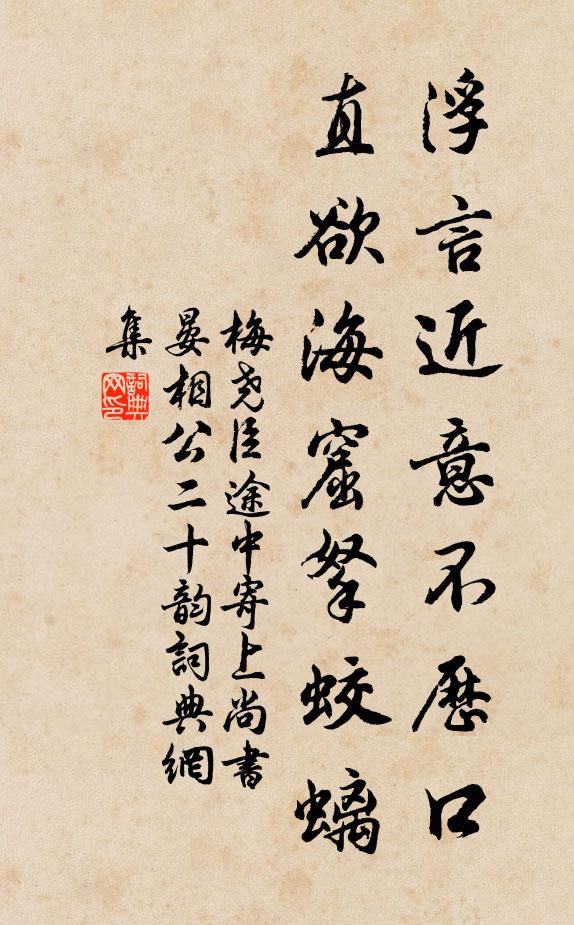 浮言近意不歷口
直欲海窟拏蛟螭
梅堯臣途中寄上尚書
晏相公二十韵詞典網
集
詞典网印